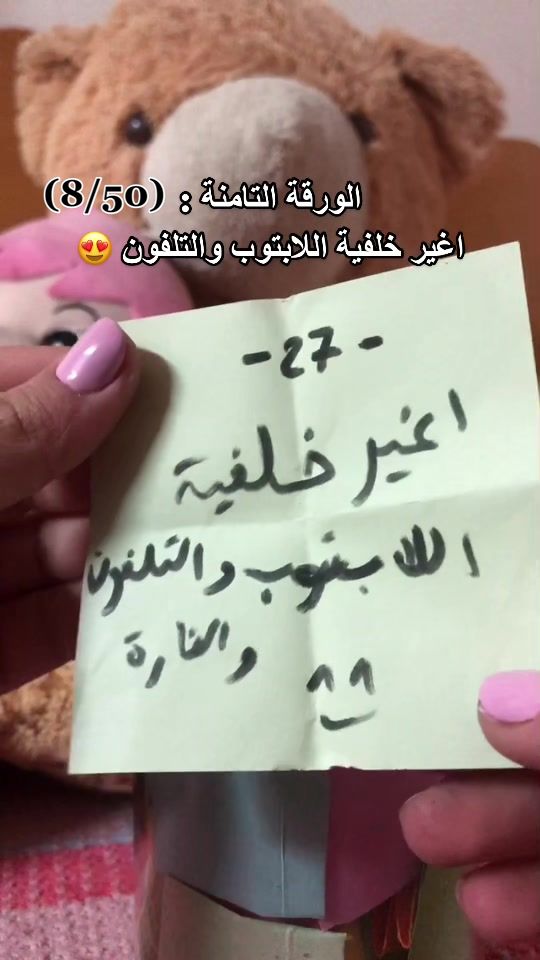 الورقة التامنة : (8/50)
اغير خلفية اللابتوب والتلفون 😍
-27-
اغير خلفية
اللابتوب والتلفون